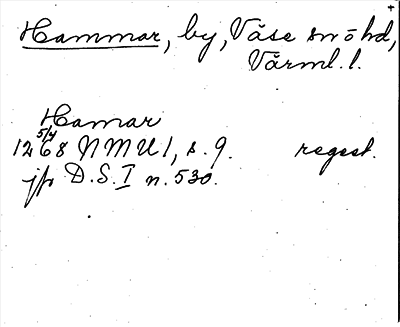 Hammar, by, Väse sn o hd,
Värml. l.
Hamar
12 5/4 68 NMU 1, s. 9. regest.
jfr D.S. I n. 530.